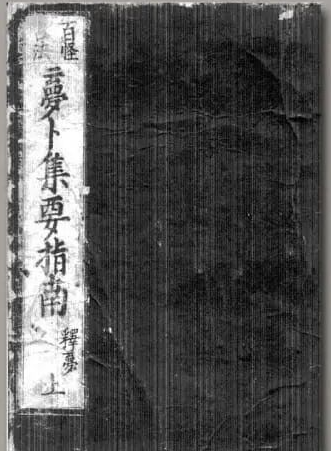 百怪
法
夢卜集要指南
釋夢
上